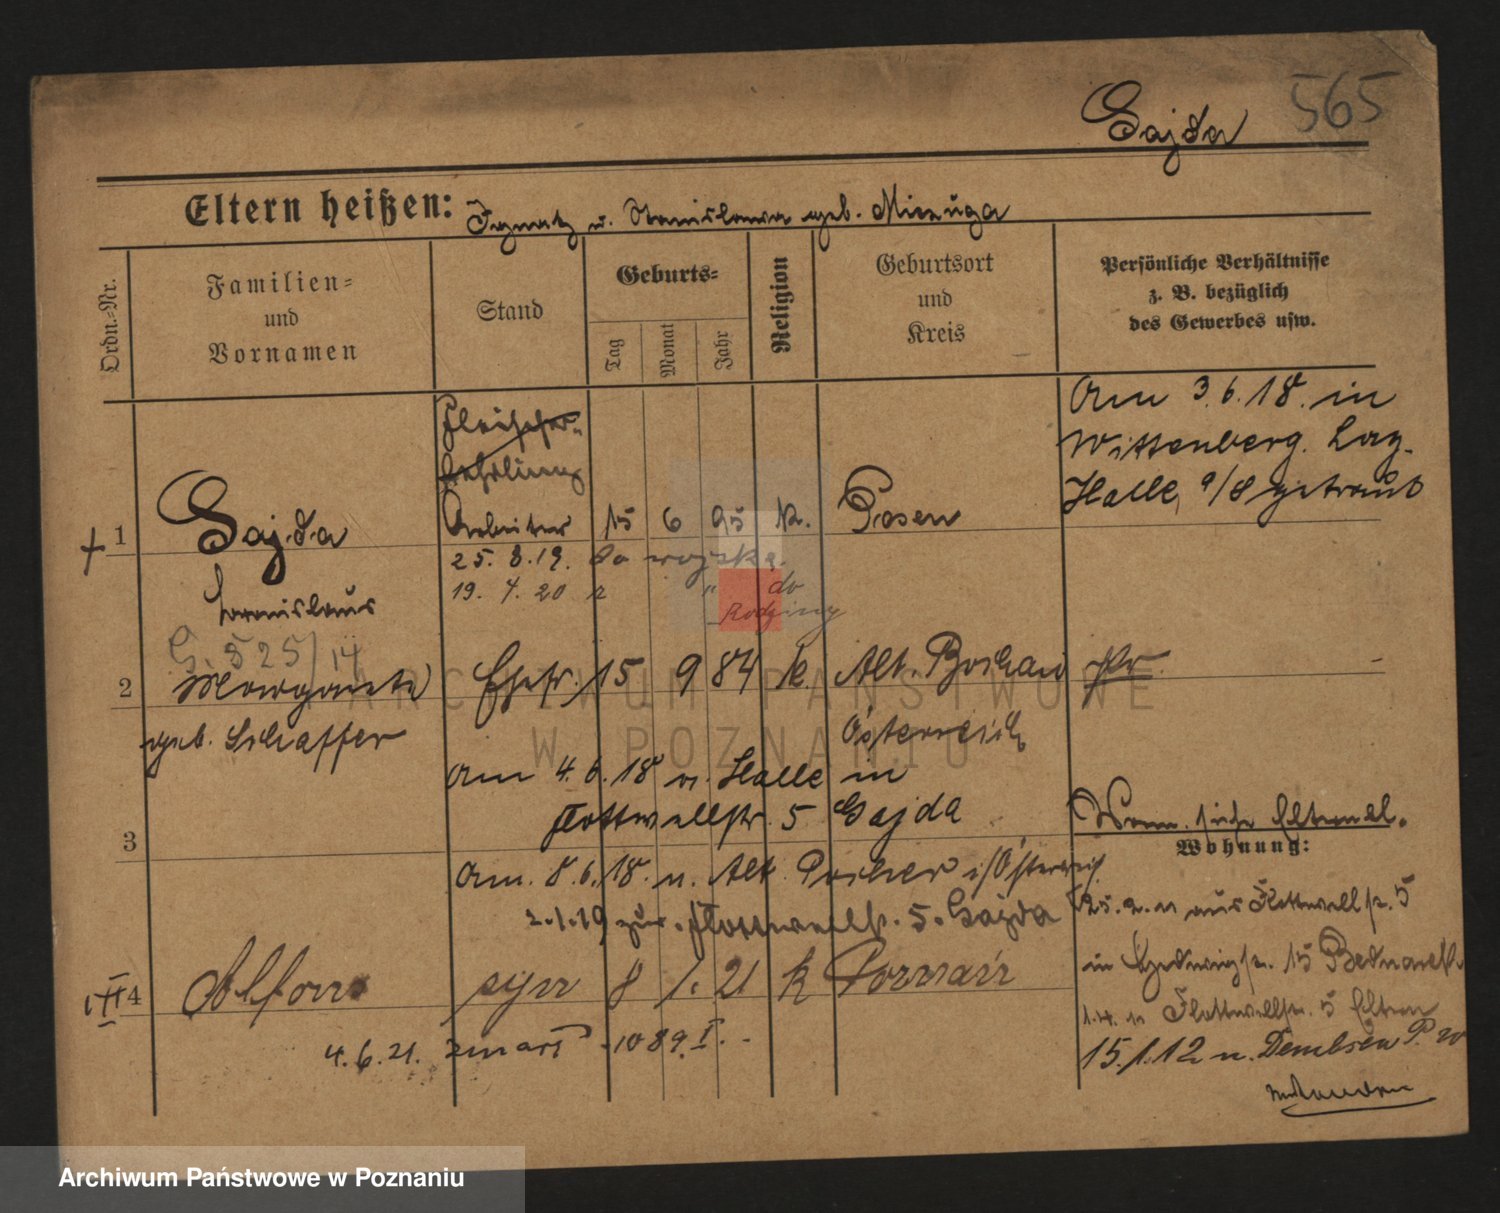 565
Gajda
Eltern heißen: Ignatz u. Stanislawa geb. Miczuga
Ordn.-Nr.
Familien-
und
Vornamen
Stand
Geburts-
Tag
Monat
Jahr
Religion
Geburtsort
und
Kreis
Persönliche Verhältnisse
z. B. bezüglich
des Gewerbes usw.
Fleischer-
lehrling
Am 3.6.18. in
Wittenberg. Lag.
Halle a/S getraut
1 Gajda Arbeiter 15 6 95 k. Posen
25. 8. 19. do wojska.
19. 4. 20 z " do
Rodziny
G. 525/14
2 Margarete Ehefr. 15 9 84 k. Alt.
geb. Schaffer
Österreich
Am 4.6.18 n. Halle in
Flottwellstr. 5 Gajda
3
Wohn. siehe Elternbl.
Wohnung:
Am. 8.6.18. n. Alt. i/Österreich
2.1.19 zur. Flottwellstr. 5. Gajda
25. 2. 11 aus Flottwellstr. 5
in Hedwigstr. 15
III 4 Alfons syn 8 1. 21 k Poznań
1.4. 11 Flottwellstr. 5 Eltern
4.6.21. zmarł 1089.I.-
15.1.12 n. Dembsen P. W
ARCHIWUM PAŃSTWOWE
W POZNANIU
Archiwum Państwowe w Poznaniu